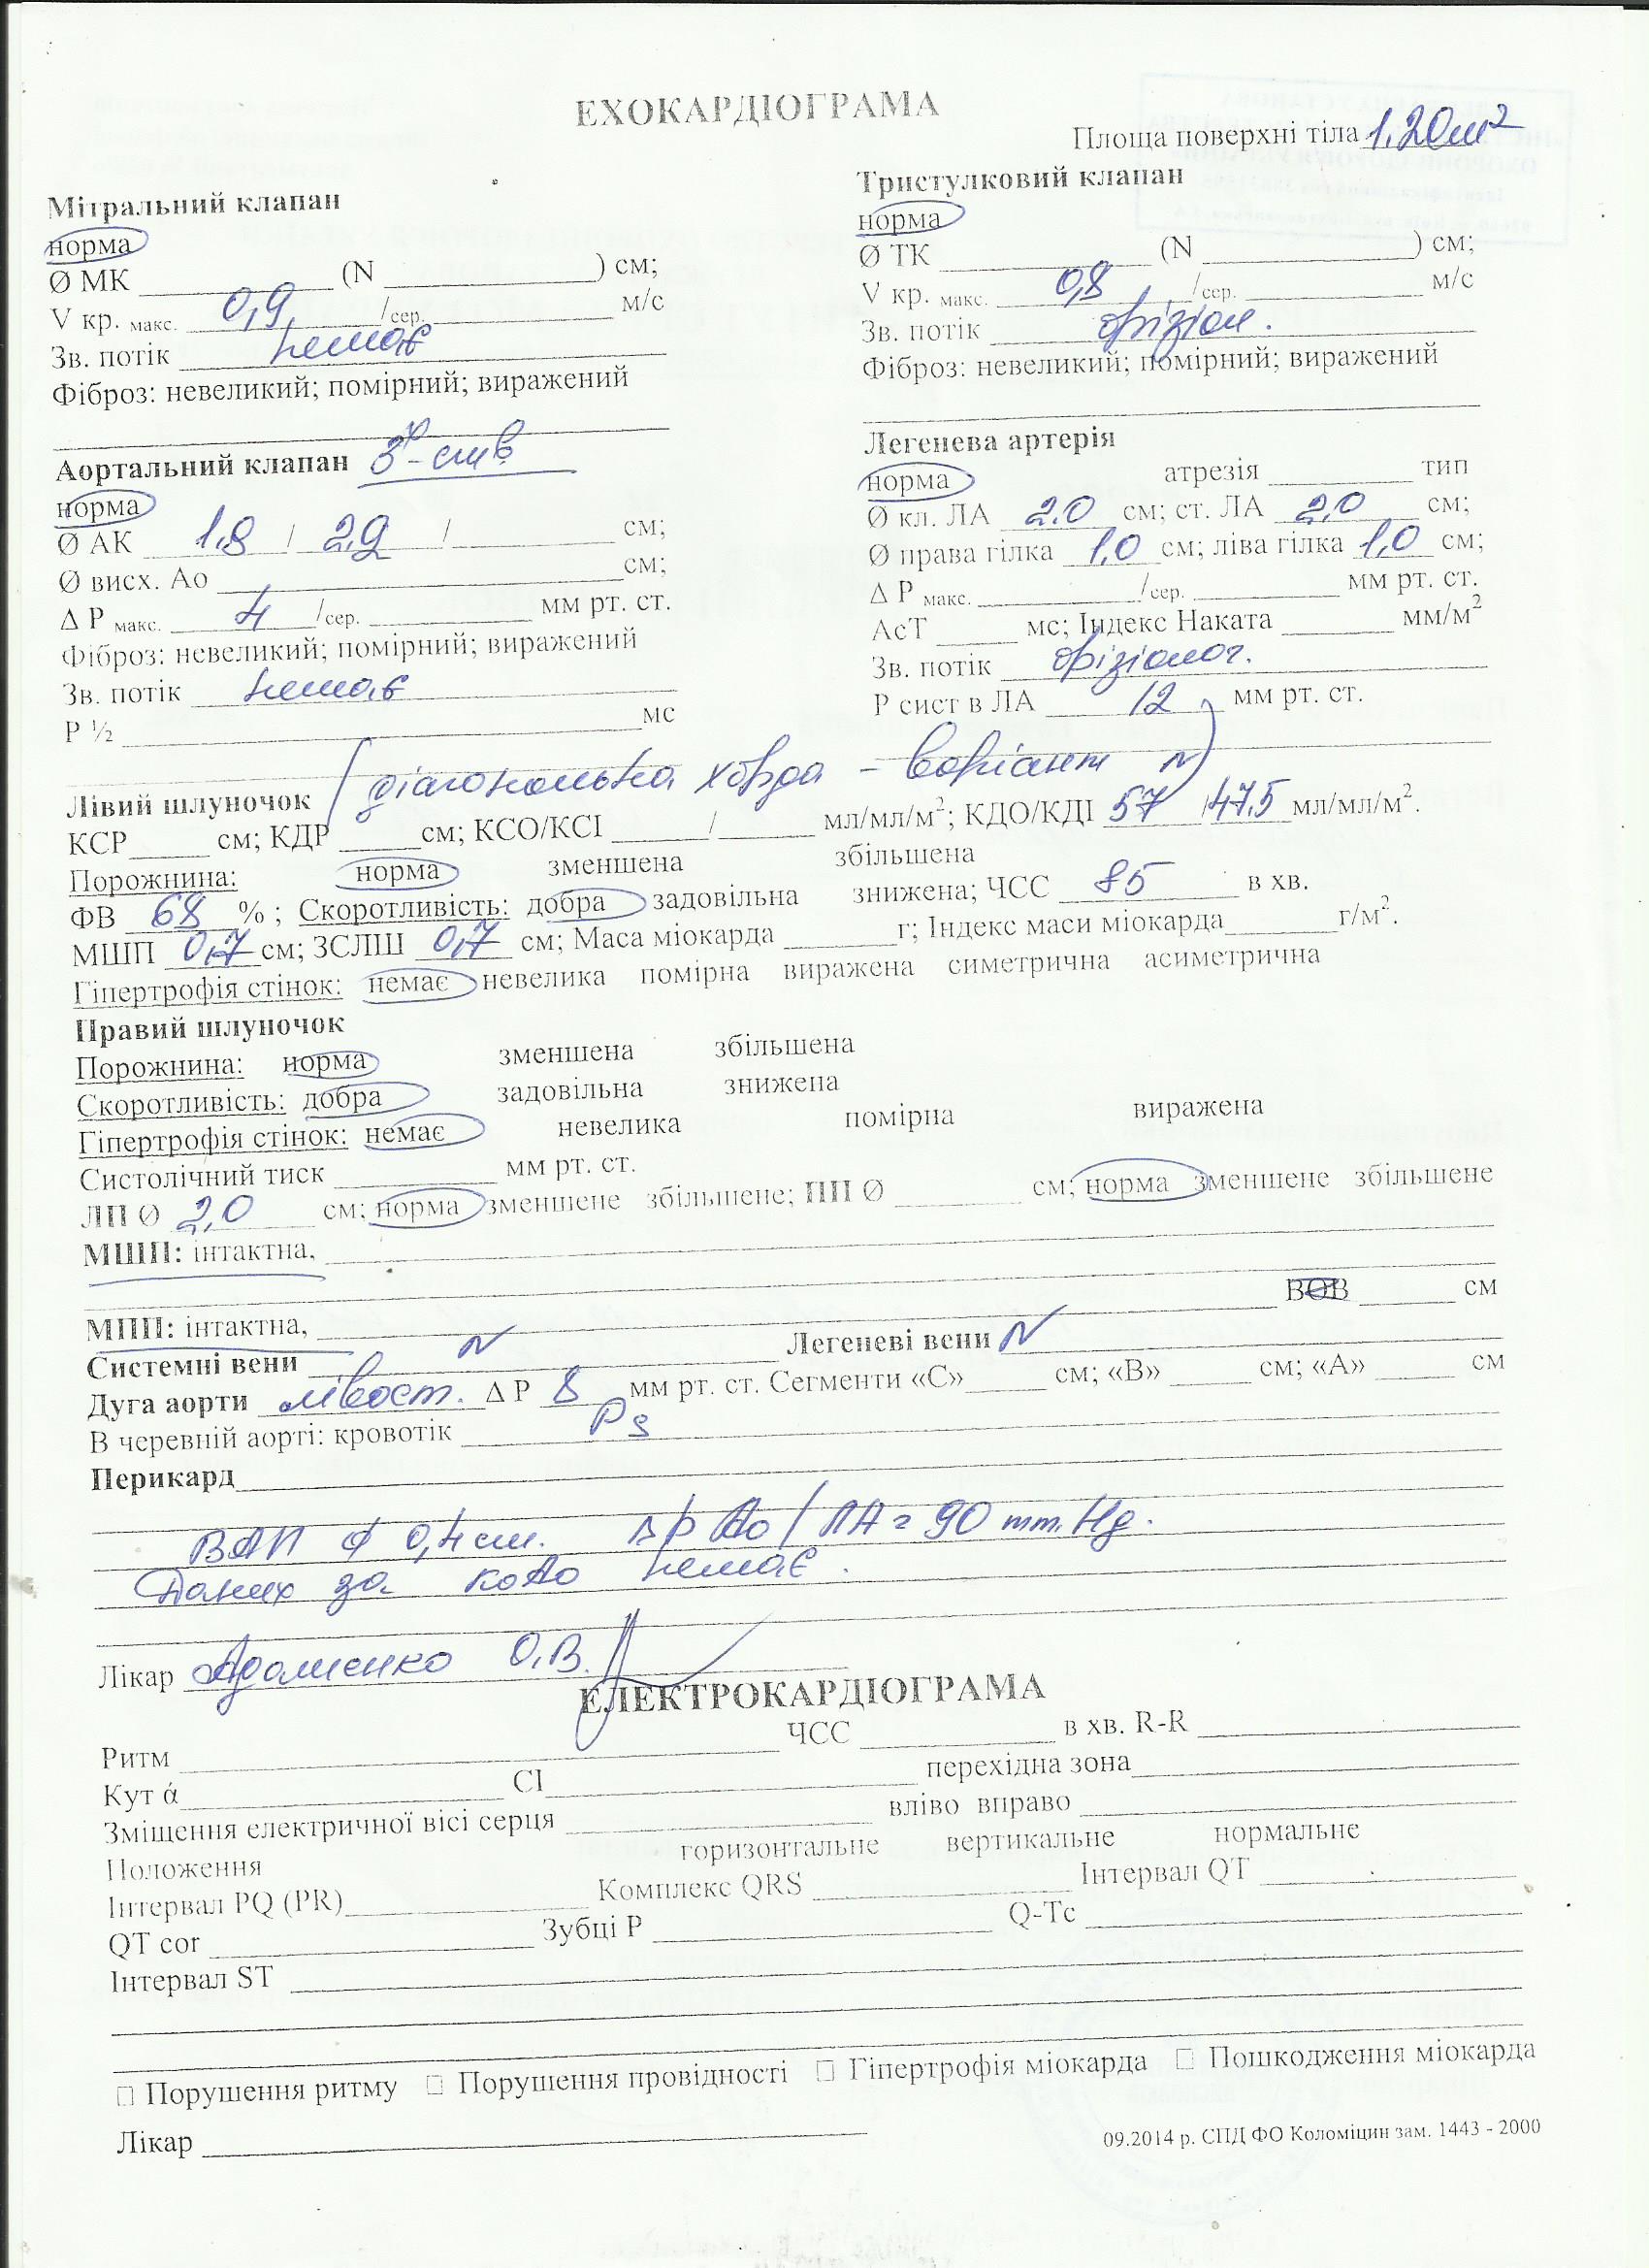 ЕХОКАРДІОГРАМА
Площа поверхні тіла 1.20 м²
Мітральний клапан
норма
Ø МК (N ) см;
V кр. макс. 0,9 /сер. м/с
Зв. потік немає
Фіброз: невеликий; помірний; виражений
Тристулковий клапан
норма
Ø ТК (N ) см;
V кр. макс. 0,8 /сер. м/с
Зв. потік фізіол.
Фіброз: невеликий; помірний; виражений
Аортальний клапан 3х-ств
норма
Ø АК 1.8 / 2,9 / см;
Ø висх. Ао см;
Δ Р макс. 4 /сер. мм рт. ст.
Фіброз: невеликий; помірний; виражений
Зв. потік немає
Р ½ мс
Легенева артерія
норма атрезія тип
Ø кл. ЛА 2.0 см; ст. ЛА 2,0 см;
Ø права гілка 1,0 см; ліва гілка 1,0 см;
Δ Р макс. /сер. мм рт. ст.
АсТ мс; Індекс Наката мм/м²
Зв. потік фізіолог.
Р сист в ЛА 12 мм рт. ст.
(діагональна хорда – варіант N)
Лівий шлуночок
КСР см; КДР см; КСО/КСІ / мл/мл/м²; КДО/КДІ 57 /47.5 мл/мл/м².
Порожнина: норма зменшена збільшена
ФВ 68 % ; Скоротливість: добра задовільна знижена; ЧСС 85 в хв.
МШП 0,7 см; ЗСЛШ 0,7 см; Маса міокарда г; Індекс маси міокарда г/м².
Гіпертрофія стінок: немає невелика помірна виражена симетрична асиметрична
Правий шлуночок
Порожнина: норма зменшена збільшена
Скоротливість: добра задовільна знижена
Гіпертрофія стінок: немає невелика помірна виражена
Систолічний тиск мм рт. ст.
ЛП Ø 2,0 см; норма зменшене збільшене; ПП Ø см; норма зменшене збільшене
МШП: інтактна,
ВОВ см
МПП: інтактна,
Системні вени N Легеневі вени N
Дуга аорти лівост. Δ Р 8 мм рт. ст. Сегменти «С» см; «В» см; «А» см
В черевній аорті: кровотік Ps
Перикард
ВАП ϕ 0,4 см. ΔP Ао/ЛА = 90 mm.Hg.
Даних за КоАо немає.
Лікар Адаменко О.В.
ЕЛЕКТРОКАРДІОГРАМА
Ритм ЧСС в хв. R-R
Кут ά СІ перехідна зона
Зміщення електричної вісі серця вліво вправо
Положення горизонтальне вертикальне нормальне
Інтервал PQ (PR) Комплекс QRS Інтервал QT
QT cor Зубці Р Q-Tc
Інтервал ST
□ Порушення ритму □ Порушення провідності □ Гіпертрофія міокарда □ Пошкодження міокарда
Лікар
09.2014 р. СПД ФО Коломіцин зам. 1443 - 2000